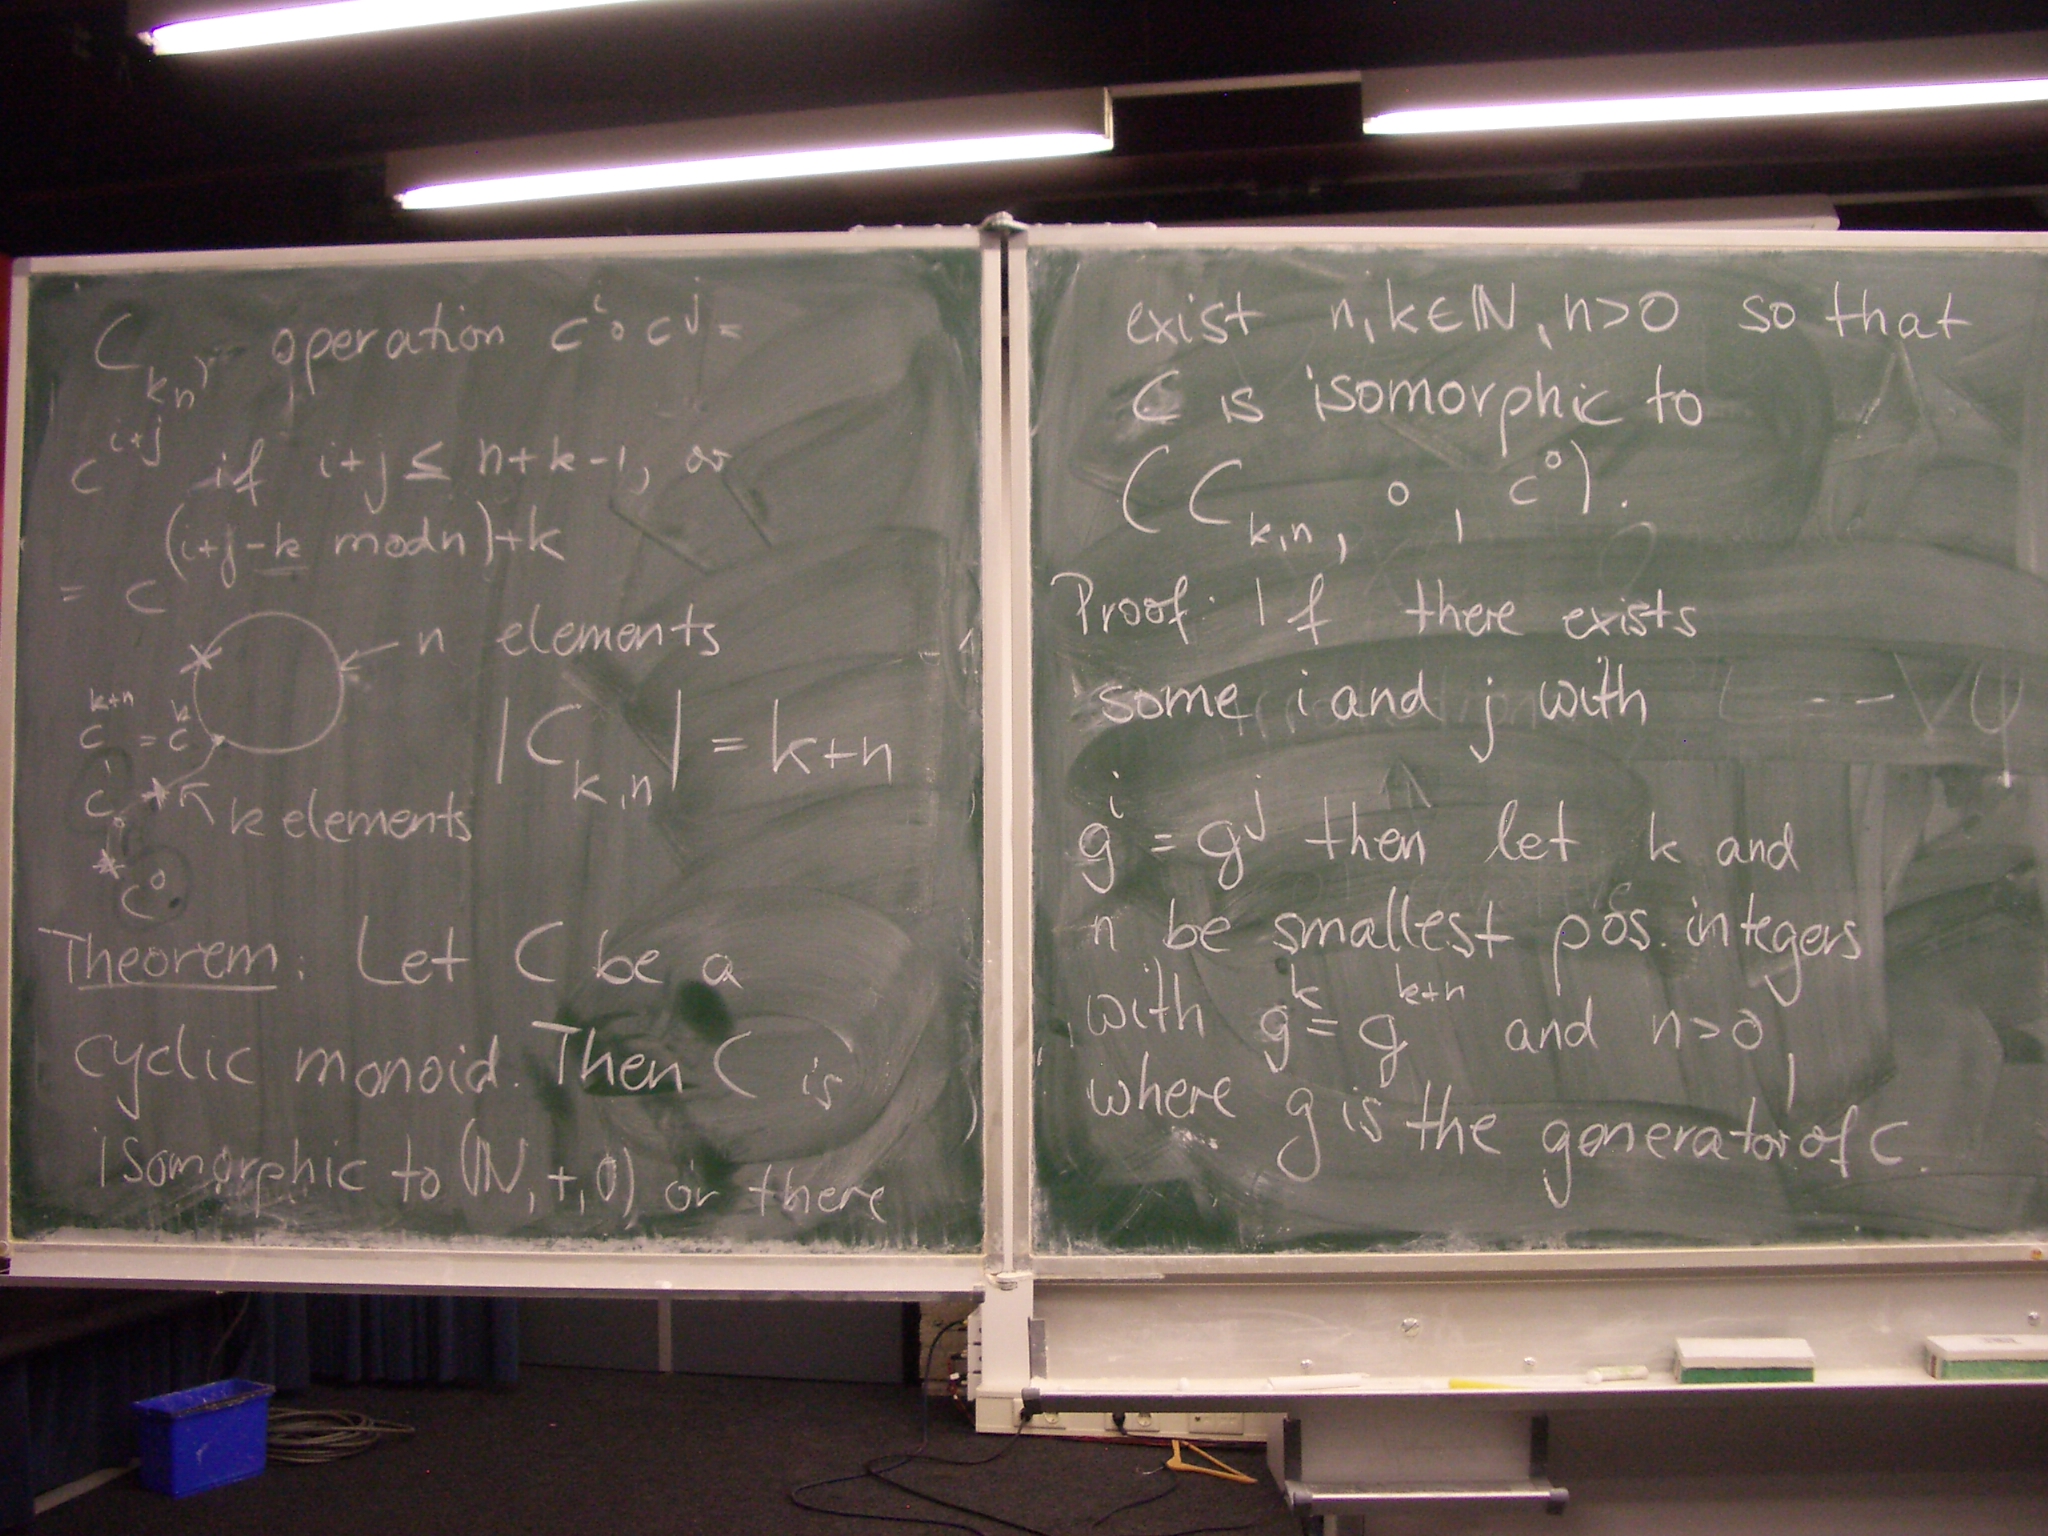 C_{k,n}, operation c^i ∘ c^j =
c^{i+j} if i+j ≤ n+k-1, or
= c^{(i+j-k mod n)+k}
n elements
c^{k+n} = c^k
|C_{k,n}| = k+n
c^1
k elements
c^0
Theorem: Let C be a
cyclic monoid. Then C is
isomorphic to (ℕ,+,0) or there
exist n,k∈ℕ, n>0 so that
C is isomorphic to
(C_{k,n}, ∘, c^0).
Proof: If there exists
some i and j with
g^i = g^j then let k and
n be smallest pos. integers
with g^k = g^{k+n} and n>0,
where g is the generator of C.